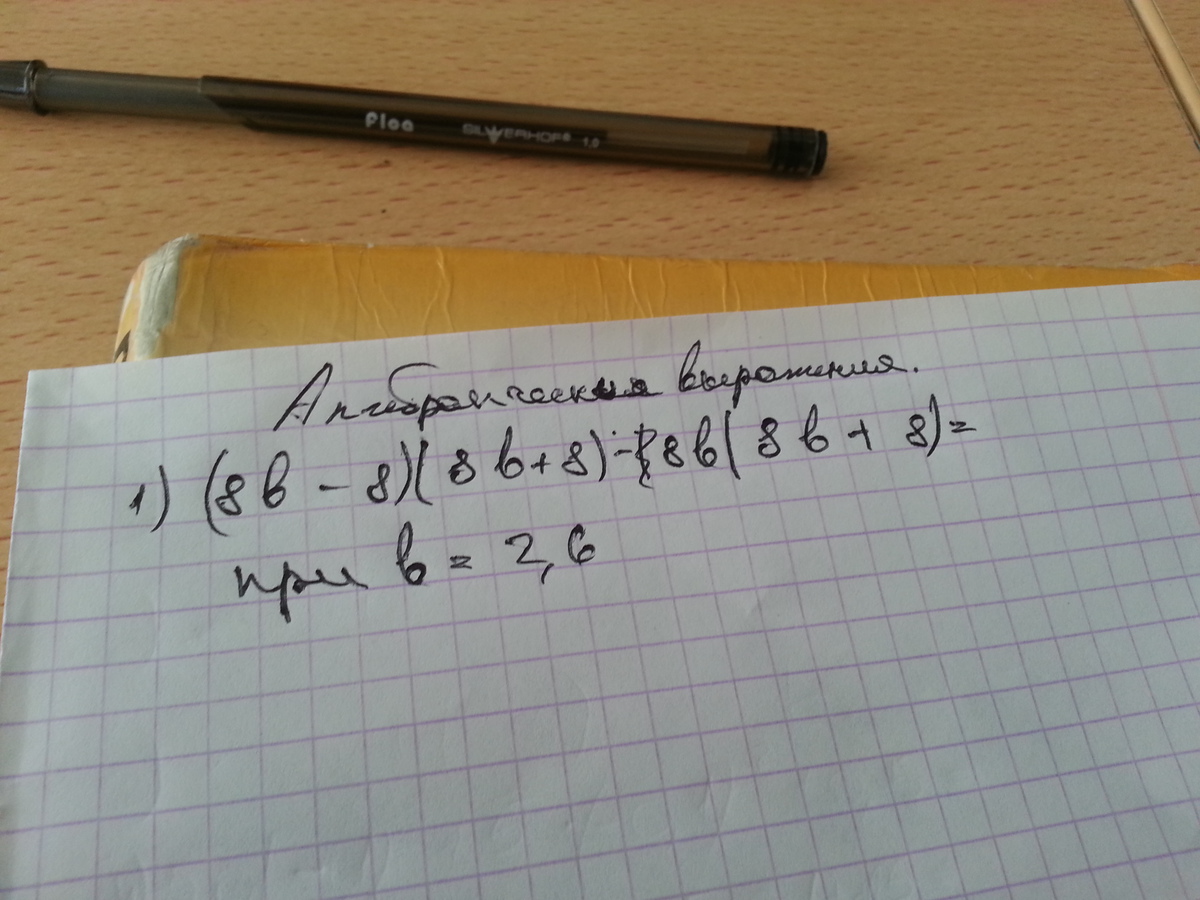 Ploo SILWERHOF® 1,0
Алгебраические выражения.
1) (8b - 8)(8b + 8) - 8b(8b + 8) =
при b = 2,6